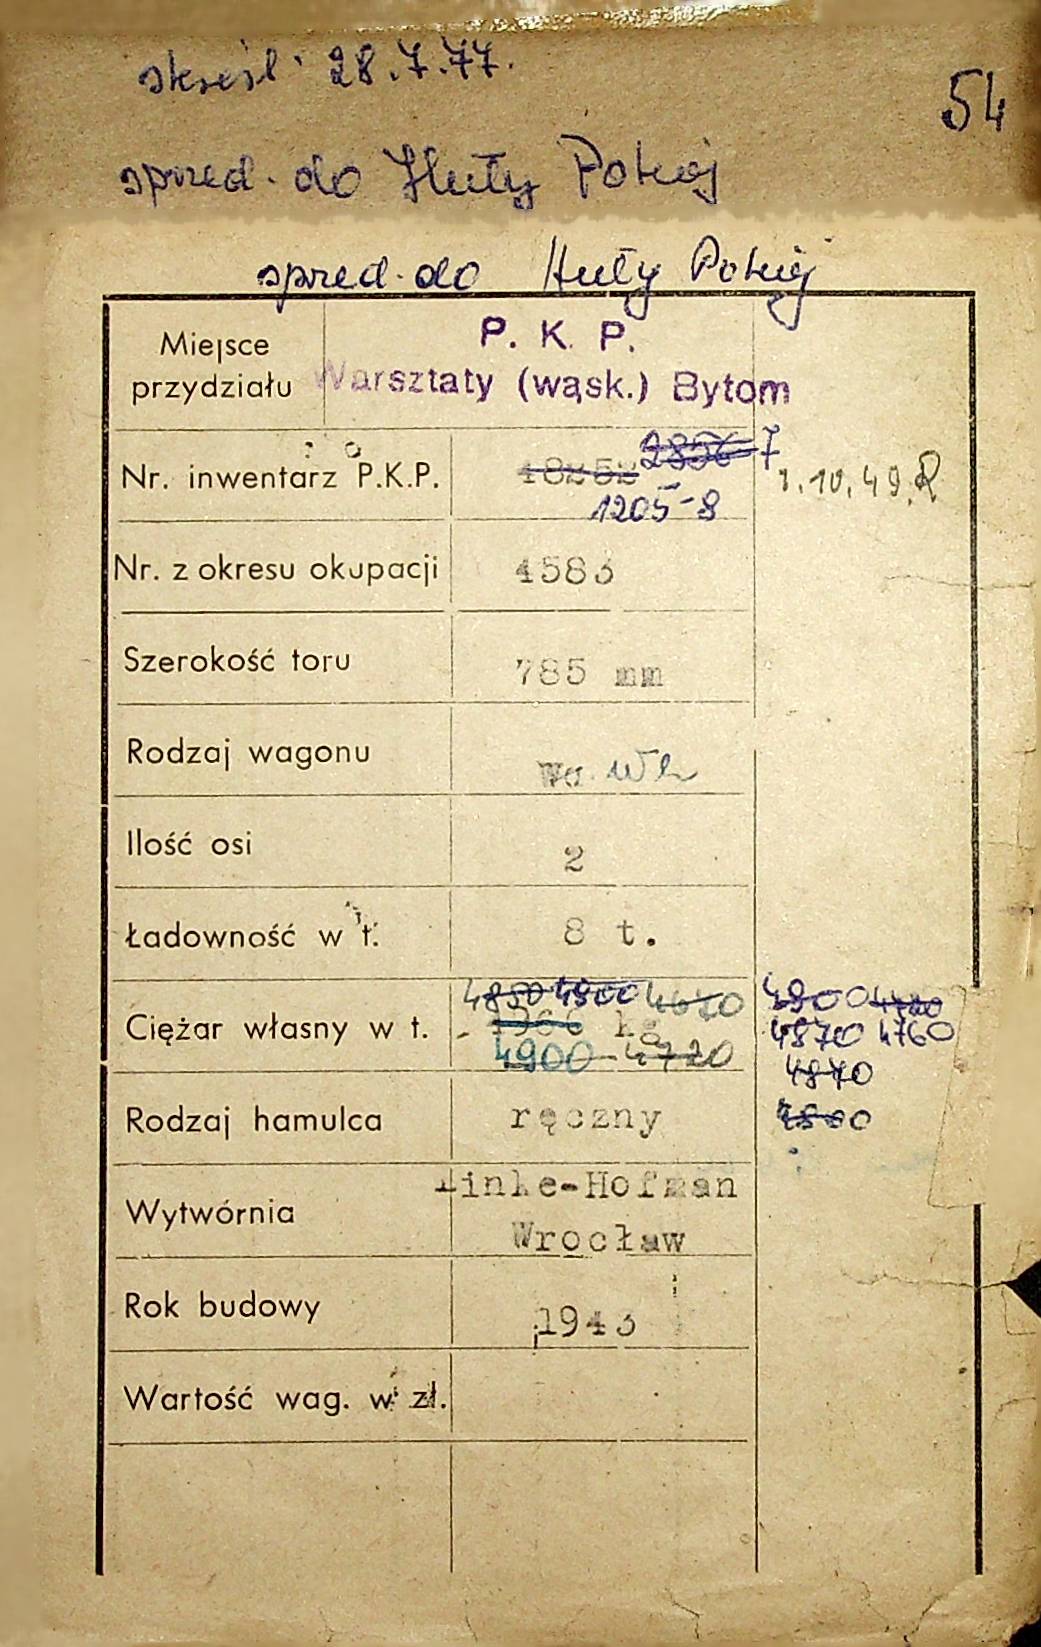 skreśl. 28.7.77.
54
sprzed. do Huty Pokój
sprzed. do Huty Pokój
Miejsce przydziału
P. K. P.
Warsztaty (wąsk.) Bytom
Nr. inwentarz P.K.P.
2856 7
1.10.49.
1205-8
Nr. z okresu okupacji 4583
Szerokość toru 785 mm
Rodzaj wagonu Wh
Ilość osi 2
Ładowność w t. 8 t.
Ciężar własny w t.
4850 4900 4670 4900 4720
kg 4870 4760
4900 - 4720 4870
Rodzaj hamulca ręczny
Wytwórnia Linke-Hofman
Wrocław
Rok budowy 1943
Wartość wag. w zł.